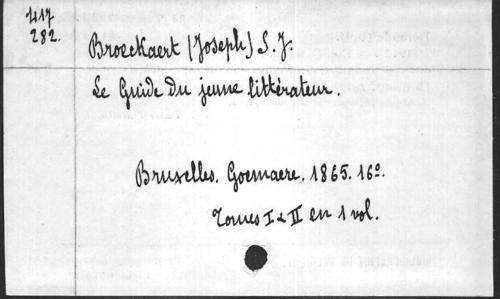 417
282.
Broeckaert (Joseph) S. J.
Le Guide du jeune littérateur.
Bruxelles. Goemaere. 1865. 16º.
Tomes I & II en 1 vol.